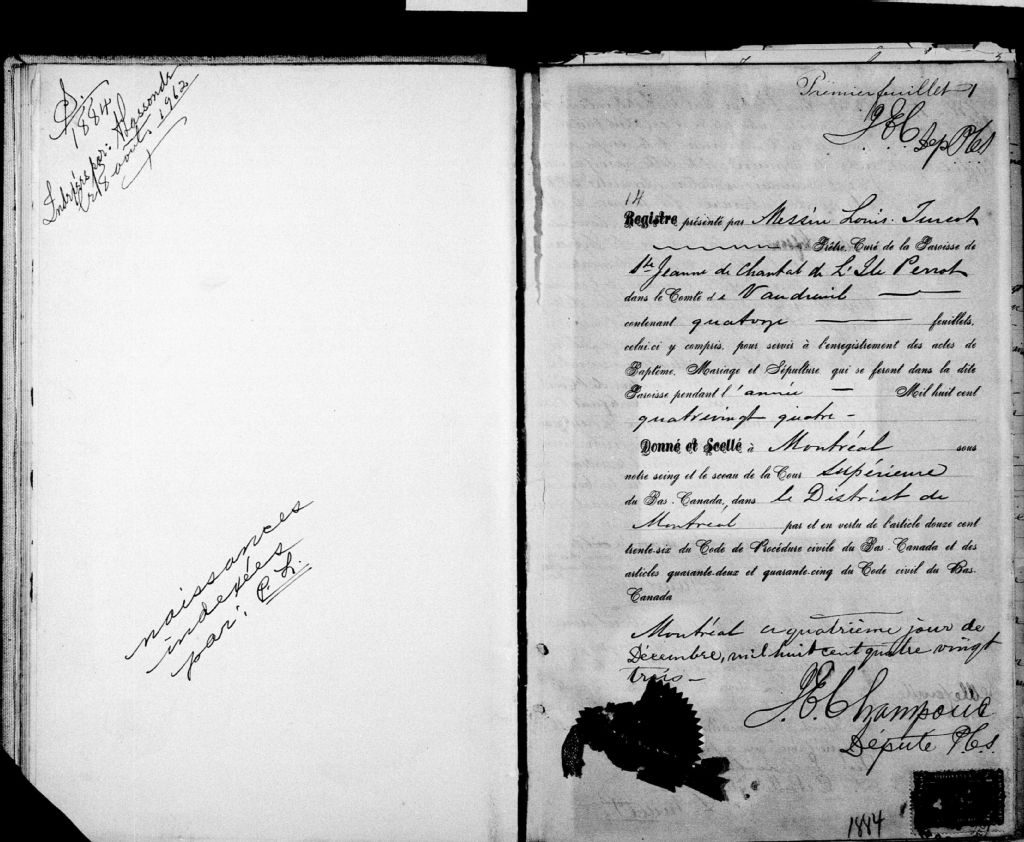 S.
1884
Indexées par: A Lassonde
le 18 août 1963
naissances
indexées
par: P. L.
Premier feuillet 1
J.E.C
Dep P.C.S
14
Registre présenté par Messire Louis Turcot
Prêtre, Curé de la Paroisse de
Ste Jeanne de Chantal de L'Ile Perrot
dans le Comté de Vaudreuil
contenant quatorze feuillets,
celui-ci y compris, pour servir à l'enregistrement des actes de
Baptême, Mariage et Sépulture, qui se feront dans la dite
Paroisse pendant l'année Mil huit cent
quatrevingt quatre -
Donné et Scellé à Montréal sous
notre seing et le sceau de la Cour Supérieure
du Bas-Canada, dans le District de
Montréal par et en vertu de l'article douze cent
trente-six du Code de Procédure civile du Bas-Canada et des
articles quarante-deux et quarante-cinq du Code civil du Bas-
Canada
Montréal ce quatrième jour de
Décembre, mil huit cent quatre vingt
trois -
J.E. Champoux
Député P.C.S.
1884